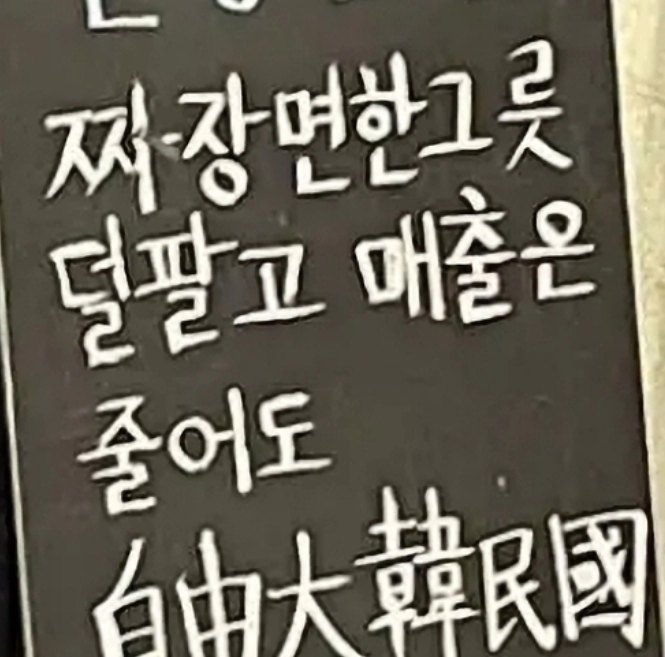 짜장면한그릇
덜팔고 매출은
줄어도
自由大韓民國